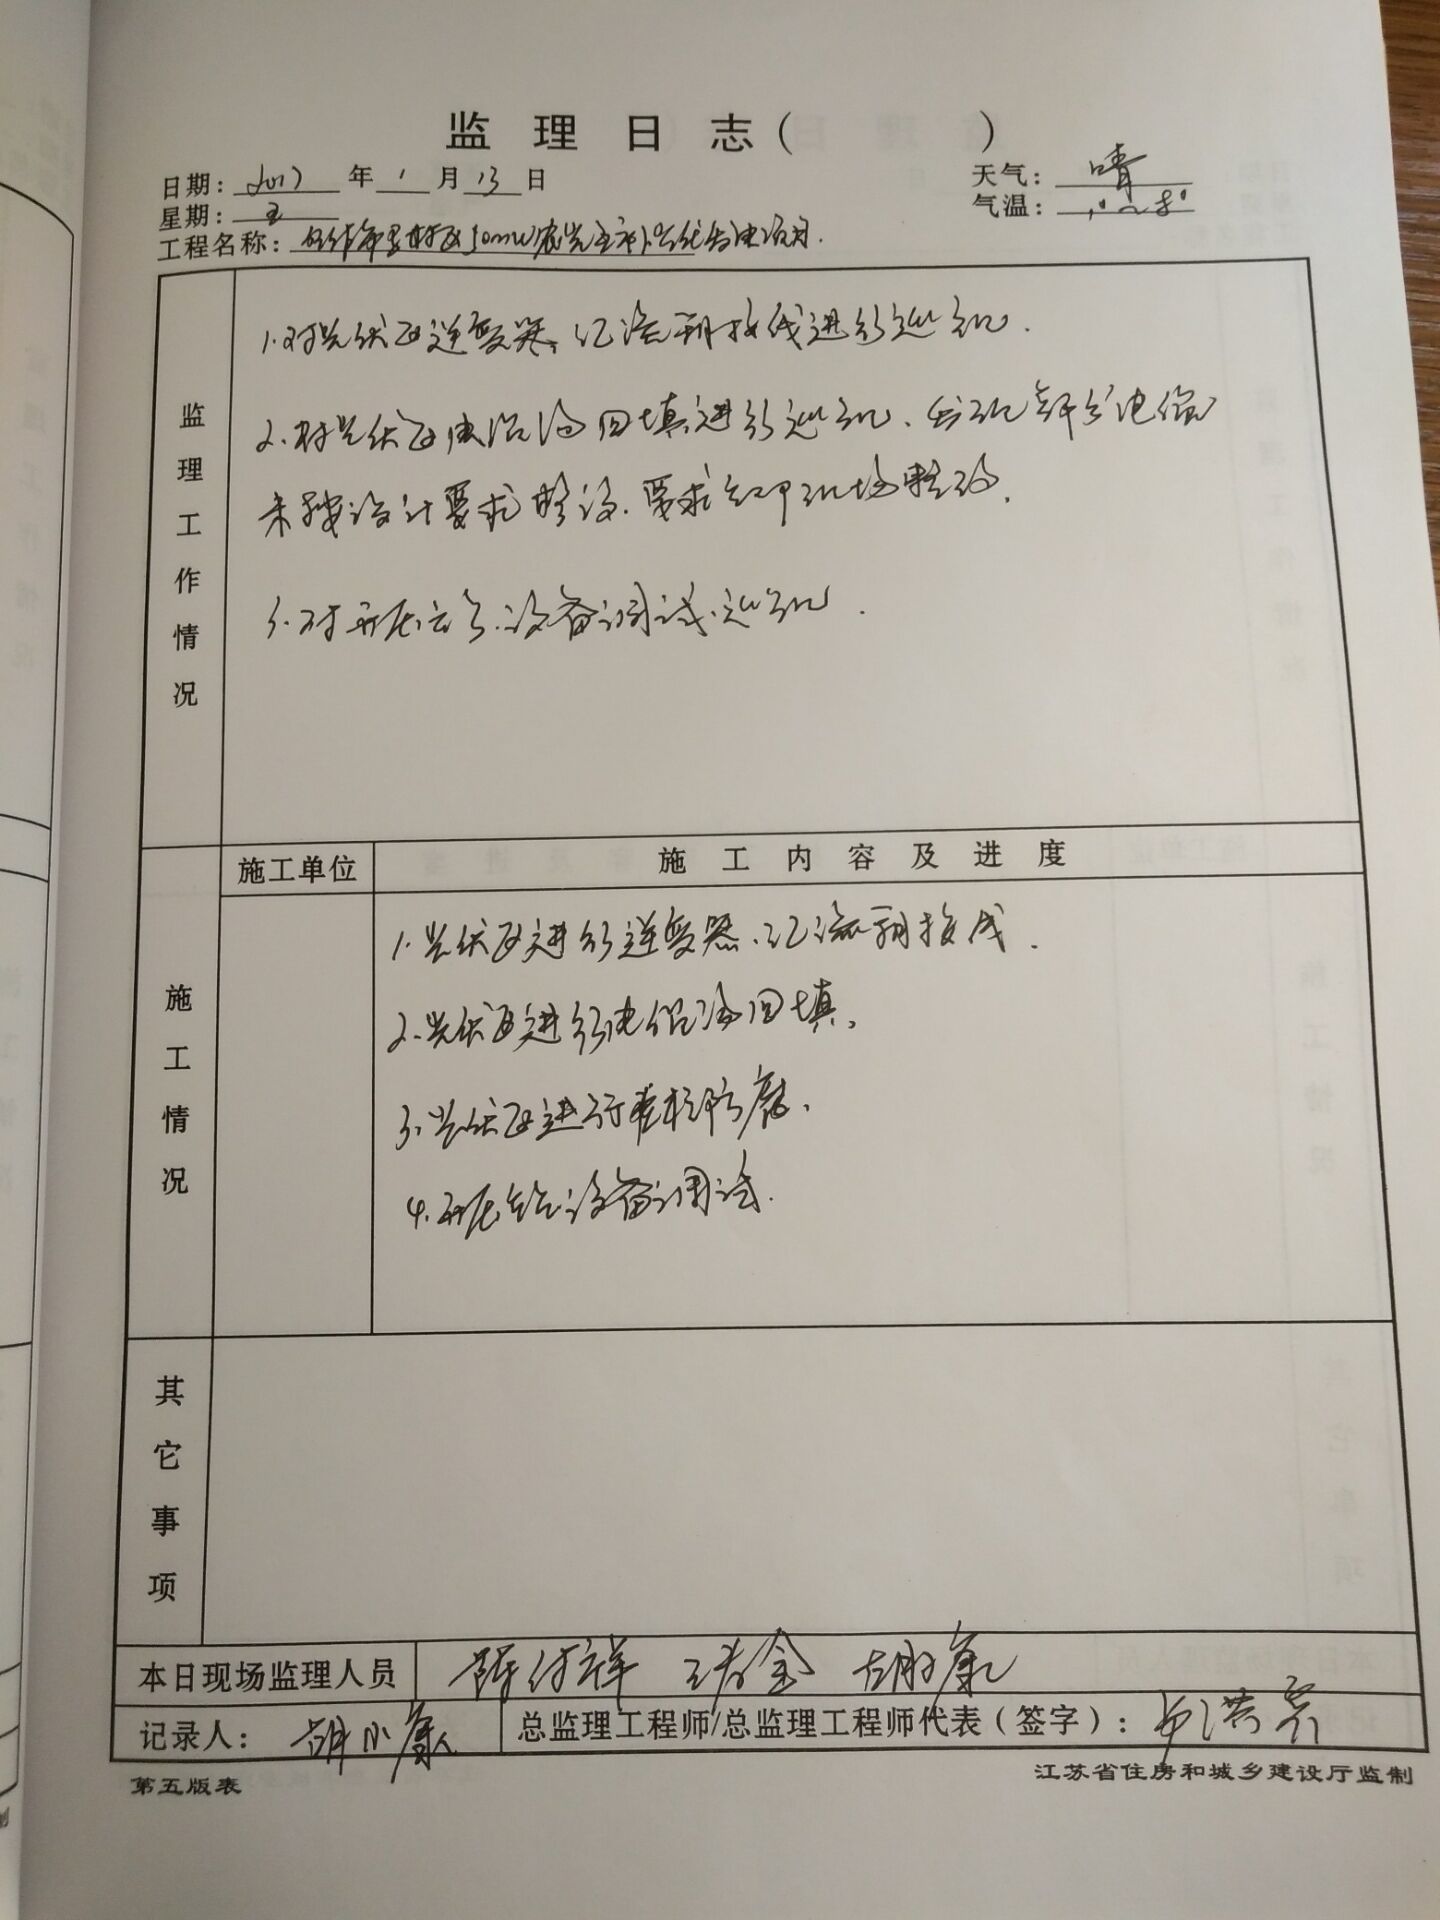 监理日志( )
日期: 2017 年 1 月 13 日
天气: 晴
星期: 五
气温:
工程名称: 50MW
监理工作情况
1.对光伏区逆变器、汇流箱接线进行巡视.
2.对光伏区电缆沟回填进行巡视、发现部分电缆
未按设计要求敷设.要求立即现场整改.
3.对开压站设备调试.巡视.
施工单位 施工内容及进度
施工情况
1.光伏区进行逆变器、汇流箱接线.
2.光伏区进行电缆沟回填.
3.光伏区进行桩防腐.
4.开压站设备调试.
其它事项
本日现场监理人员
记录人: 胡小康 总监理工程师/总监理工程师代表(签字):
第五版表 江苏省住房和城乡建设厅监制